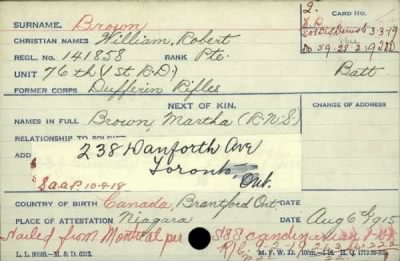 SURNAME. Brown
CARD NO.
2.
CHRISTIAN NAMES William, Robert
REGL. NO. 141858 RANK Pte.
UNIT 76th (1st R.D.) Batt
FORMER CORPS Dufferin Rifles
NEXT OF KIN.
CHANGE OF ADDRESS
NAMES IN FULL Brown, Martha
RELATIONSHIP TO
ADD
238 Danforth Ave
Toronto
Ont.
COUNTRY OF BIRTH Canada, Brantford Ont DATE
PLACE OF ATTESTATION Niagara DATE Aug 6th 1915
Sailed from Montreal per S.S. Scandinavian